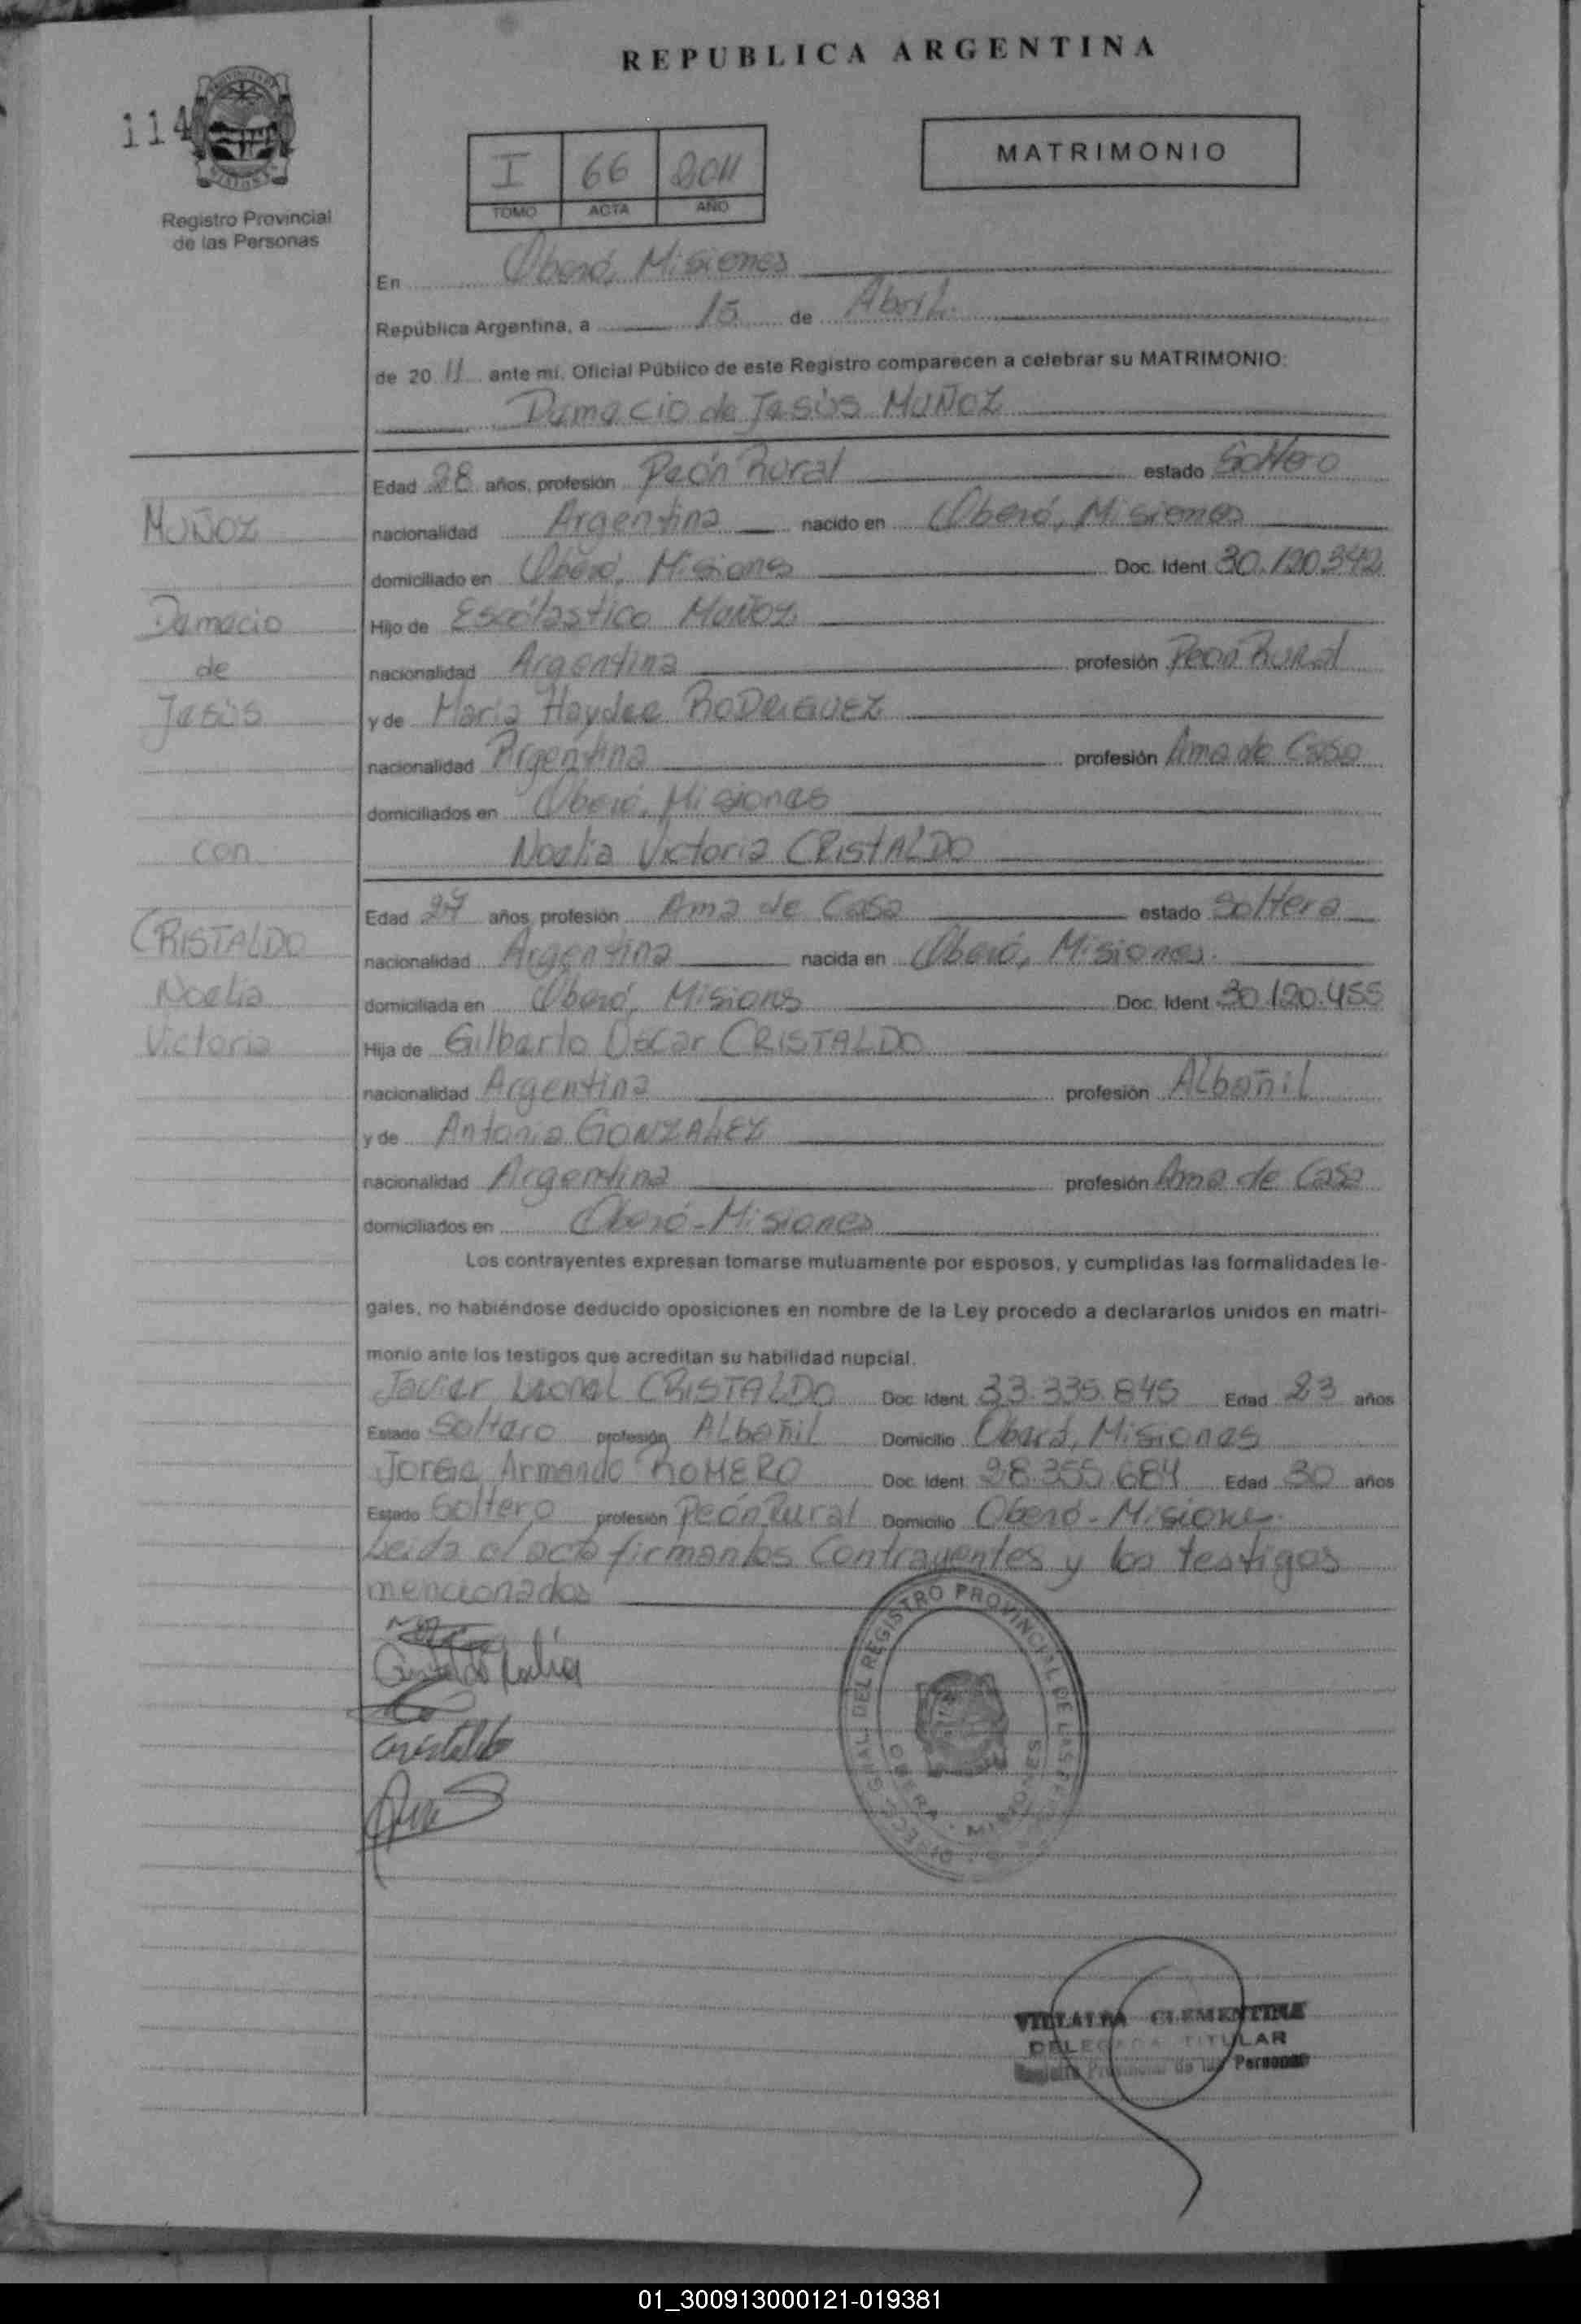 REPUBLICA ARGENTINA
114
Registro Provincial
de las Personas
I 66 2011
TOMO ACTA AÑO
MATRIMONIO
En Oberá, Misiones
República Argentina, a 15 de Abril
de 20 11 ante mi, Oficial Público de este Registro comparecen a celebrar su MATRIMONIO:
Damacio de Jesús MUÑOZ
Edad 28 años, profesión Peón Rural estado Soltero
nacionalidad Argentina nacido en Oberá, Misiones
domiciliado en Oberá, Misiones Doc. Ident. 30.120.342
Hijo de Escolástico MUÑOZ
nacionalidad Argentina profesión Peon Rural
y de Maria Haydee RODRIGUEZ
nacionalidad Argentina profesión Ama de Casa
domiciliados en Oberá, Misiones
Noelia Victoria CRISTALDO
Edad 27 años, profesión Ama de Casa estado Soltera
nacionalidad Argentina nacida en Oberá, Misiones.
domiciliada en Oberá, Misions Doc. Ident. 30.120.455
Hija de Gilberto Oscar CRISTALDO
nacionalidad Argentina profesión Albañil
y de Antonia GONZALEZ
nacionalidad Argentina profesión Ama de Casa
domiciliados en Oberá-Misiones
MUÑOZ
Damacio
de
Jesús
con
CRISTALDO
Noelia
Victoria
Los contrayentes expresan tomarse mutuamente por esposos, y cumplidas las formalidades le-
gales, no habiéndose deducido oposiciones en nombre de la Ley procedo a declararlos unidos en matri-
monio ante los testigos que acreditan su habilidad nupcial.
Javier Leonel CRISTALDO Doc. Ident. 33.335.845 Edad 23 años
Estado Soltero profesión Albañil Domicilio Oberá, Misiones
Jorge Armando ROMERO Doc. Ident. 28.355.684 Edad 30 años
Estado Soltero profesión Peón Rural Domicilio Oberá-Misiones
Leida el acta firman los Contrayentes y los testigos
mencionados
Cristaldo Noelia
Cristaldo
DEL REGISTRO PROVINCIAL DE LAS
OBERA - MISIONES
VILLALBA CLEMENTINA
DELEGADA TITULAR
Registro Provincial de las Personas
01_300913000121-019381